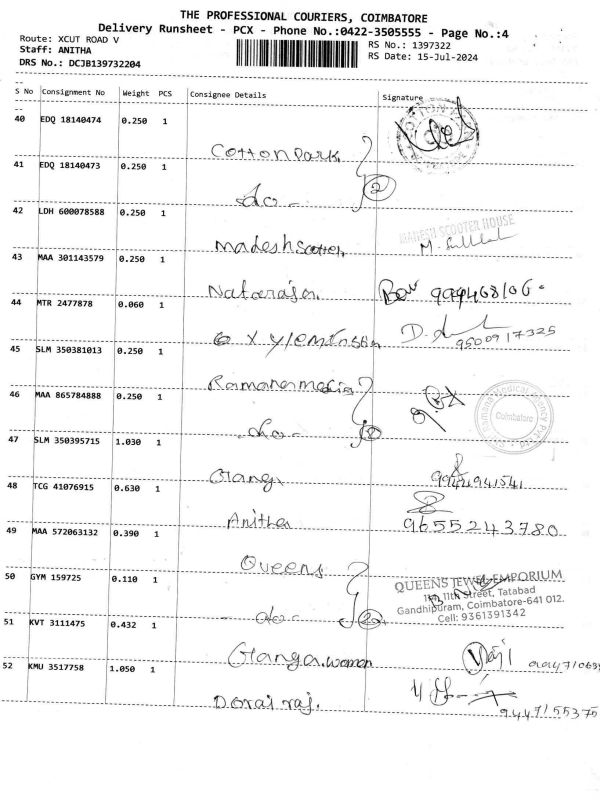 THE PROFESSIONAL COURIERS, COIMBATORE
Delivery Runsheet - PCX - Phone No.:0422-3505555 - Page No.:4
Route: XCUT ROAD V
RS No.: 1397322
Staff: ANITHA
RS Date: 15-Jul-2024
DRS No.: DCJB139732204
S No Consignment No Weight PCS Consignee Details Signature
40 EDQ 18140474 0.250 1
Cotton Park
41 EDQ 18140473 0.250 1
-do- 2
42 LDH 600078588 0.250 1
MAHESH SCOOTER HOUSE
Madesh Scooter
43 MAA 301143579 0.250 1
Natarajan
44 MTR 2477878 0.060 1
9500917325
45 SLM 350381013 0.250 1
46 MAA 865784888 0.250 1
Coimbatore
-do-
47 SLM 350395715 1.030 1
9944941541
48 TCG 41076915 0.630 1
Anitha 9655243780
49 MAA 572063132 0.390 1
Queens
50 GYM 159725 0.110 1
QUEENS JEWEL EMPORIUM
11th Street, Tatabad
Gandhipuram, Coimbatore-641 012.
Cell: 9361391342
-do- 2
51 KVT 3111475 0.432 1
Ganga women
52 KMU 3517758 1.050 1
Dorai raj.
9447155375